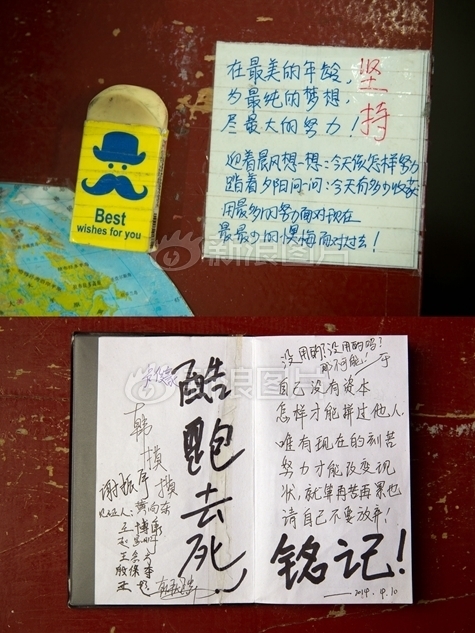 Best
wishes for you
在最美的年龄，
为最纯的梦想，
尽最大的努力！
坚持
迎着晨风想一想：今天该怎样努力
踏着夕阳问一问：今天有多少收获
用最多的努力面对现在
最最少的悔面对过去！
新浪图片
酷跑去死
韩
摸
摸
见证人：
王博
没用的？没用的吗？
那不可能！
自己没有资本
怎样才能拼过他人
唯有现在的刻苦
努力才能改变现
状，就算再苦再累也
请自己不要放弃！
铭记！
——2014.4.10